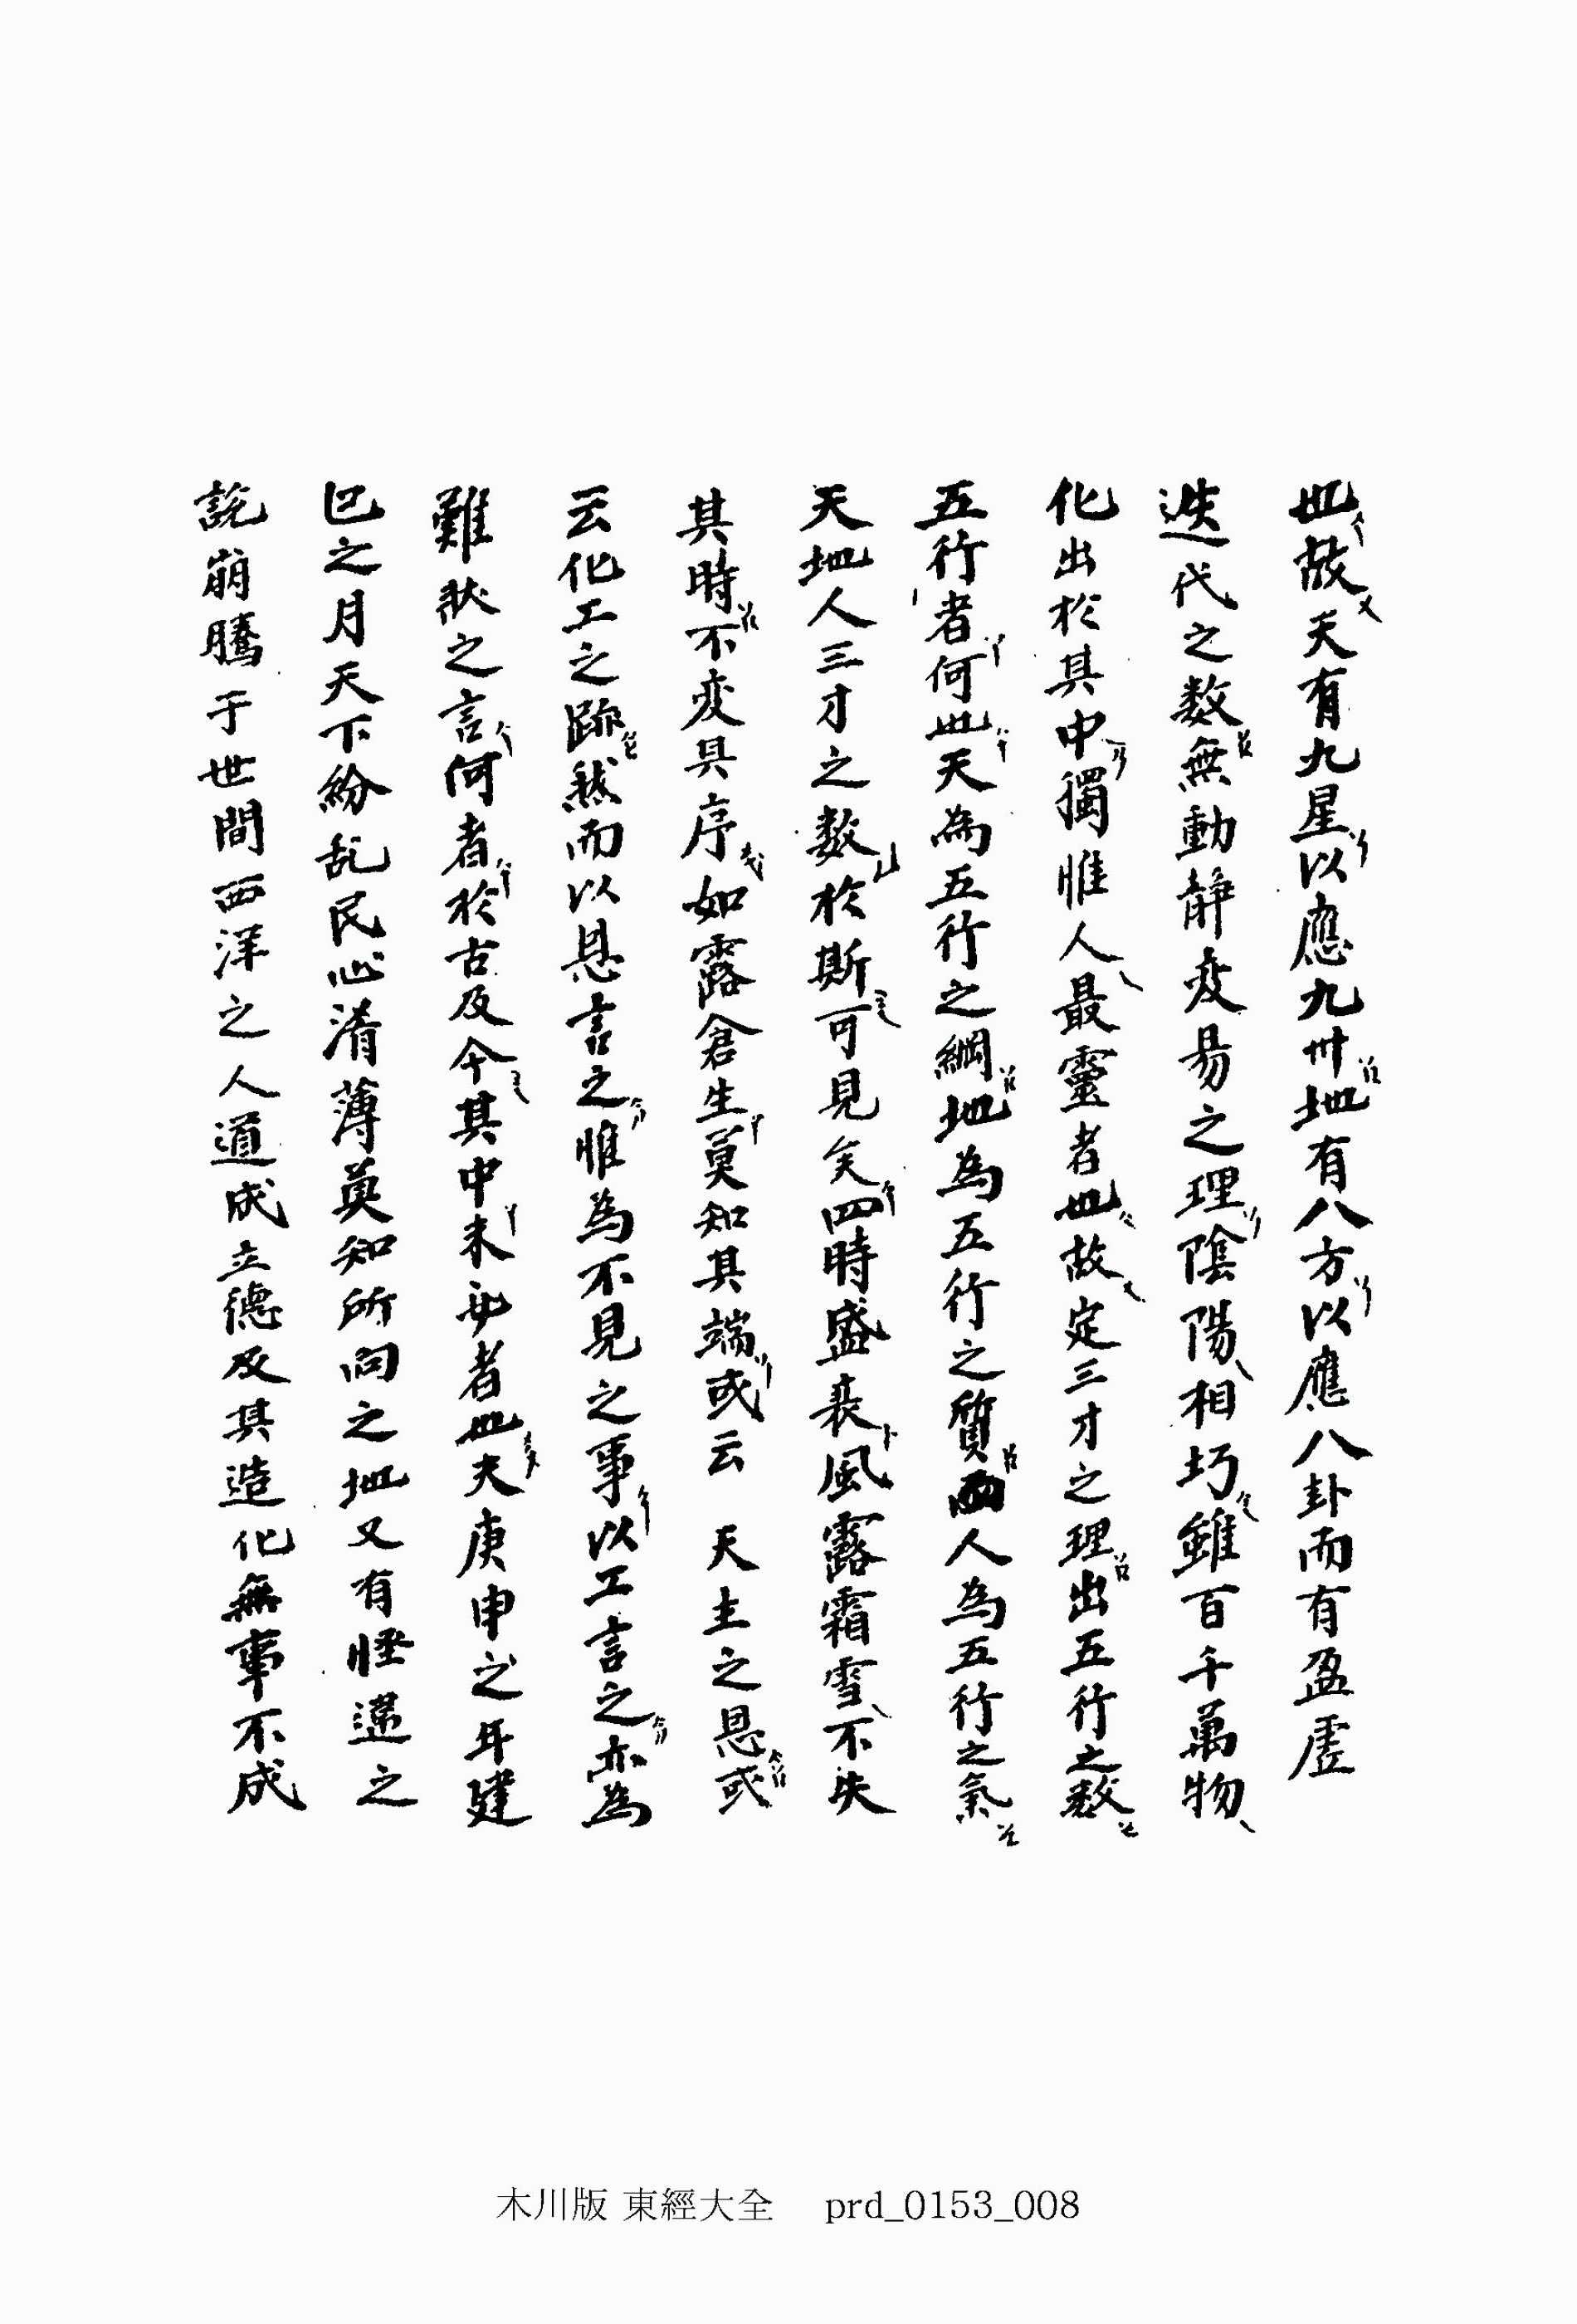 也故天有九星以應九卅地有八方以應八卦而有盈虛
迭代之数無動静変易之理陰陽相均雖百千萬物
化出於其中獨惟人最靈者也故定三才之理出五行之数
五行者何也天為五行之綱地為五行之質人為五行之氣
天地人三才之数於斯可見矣四時盛衰風露霜雪不失
其時不変其序如露倉生莫知其端或云 天主之恩或
云化工之跡然而以恩言之惟為不見之事以工言之亦為
難狀之言何者於古及今其中未必者也夫庚申之年建
巳之月天下紛乱民心淆薄莫知所向之地又有怪違之
說崩騰于世間西洋之人道成立德及其造化無事不成
木川版 東經大全 prd_0153_008